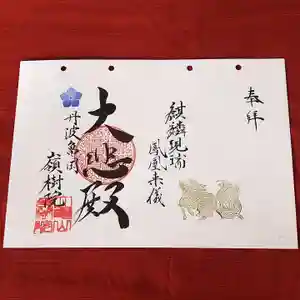 奉拝
麒麟現瑞
鳳凰来儀
大悲殿
丹波亀岡
嶺樹院